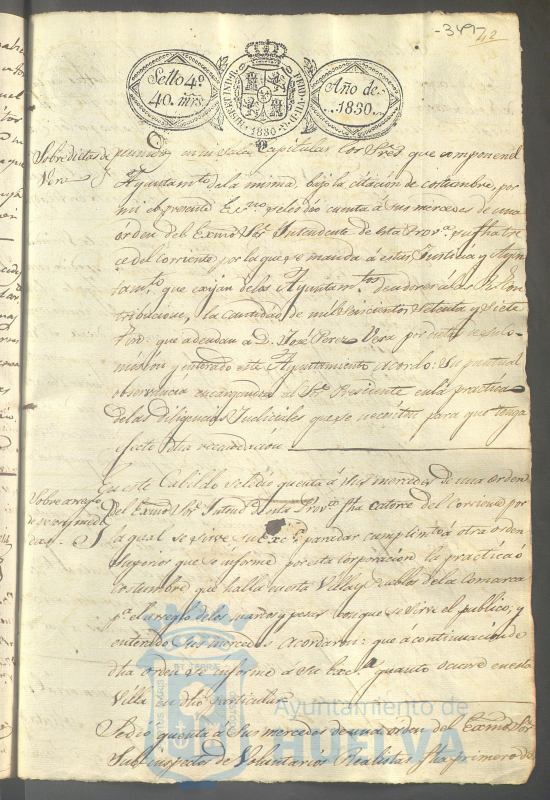 -347
42
Sello 4º
40. mrs
HISPAN. ET IND. R.
1830
Año de
1830.
Sobre dietas de
Vera
reunidos en su Sala Capitular los Sres que componen el
Ayuntamto de la misma, bajo la citacion de costumbre, por
mi el presente Esno se les dio cuenta á sus mercedes de una
orden del Exmo Sor Intendente de esta Prova su fha tre
ce del corriente, por la que se manda á estas Justicia y Ayun
tamto, que exijan de los Ayuntamtos deudores a las Rs Con
tribuciones, la cantidad de mil seiscientos setenta y siete
que adeudan a D. José Perez Vera por dietas
y enterado este Ayuntamiento acordo: Su puntual
observancia encargandose al Sor Presidente, en la practica
de las diligencias Judiciales que se necesiten para que tenga
efecto dha recaudacion
Sobre arreglo
de pesos y medi
das
En este Cabildo se dio cuenta á sus mercedes de una orden
del Exmo Sor Intendte de la Prova fha catorce del corriente por
la qual se sirve su Exca para dar cumplimto á otra orden
Superior que se informe por esta corporacion la practica ó
costumbre que halla en esta Villa y Pueblos de la Comarca
pa el arreglo de los marcos y pesas con que se sirve el publico; y
enterados sus mercedes acordaron: que a continuacion de
dha orden se informe á Su Exca quanto ocurre en esta
Villa en dho particular
Se dio quenta a sus mercedes de una orden del Exmo Sor
Sub inspector de Voluntarios Realistas fha primero de
Ayuntamiento de
HUELVA